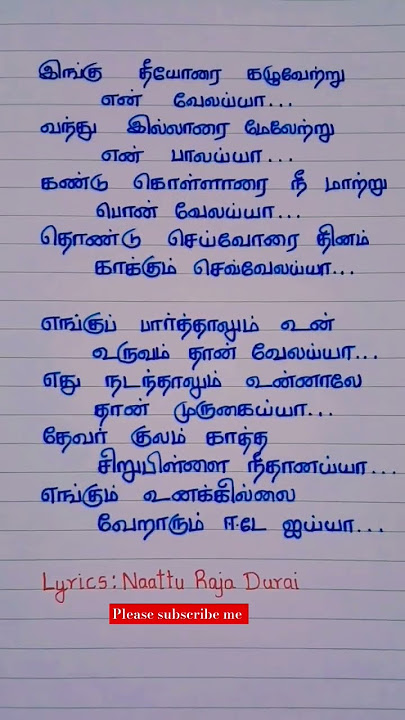 இங்கு தீயோரை கழுவேற்று
என் வேலய்யா...
வந்து இல்லாரை மேலேற்று
என் பாலய்யா...
கண்டு கொள்ளாரை நீ மாற்று
பொன் வேலய்யா...
தொண்டு செய்வோரை தினம்
காக்கும் செவ்வேலய்யா...
எங்குப் பார்த்தாலும் உன்
உருவம் தான் வேலய்யா...
எது நடந்தாலும் உன்னாலே
தான் முருகைய்யா...
தேவர் குலம் காத்த
சிறுபிள்ளை நீதானய்யா...
எங்கும் உனக்கில்லை
வேறாரும் ஈடே ஐய்யா...
Lyrics: Naattu Raja Durai
Please subscribe me